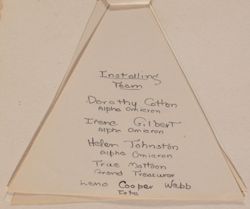 Installing
Team
Dorothy Cotton
Alpha Omicron
Irene Gilbert
Alpha Omicron
Helen Johnston
Alpha Omicron
True Mattoon
Grand Treasurer
Lena Cooper Webb
Iota